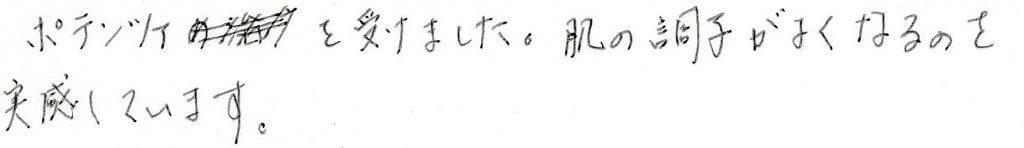 ポテンツァを受けました。肌の調子がよくなるのを
実感しています。